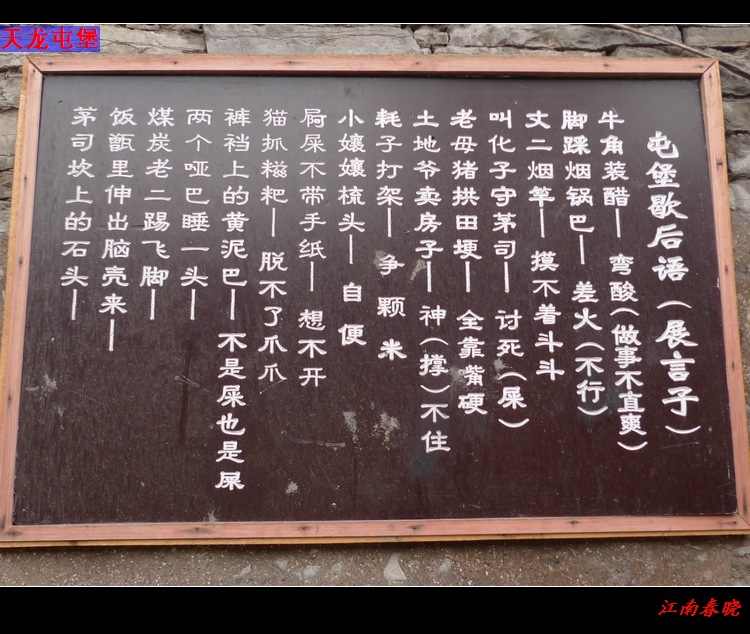 天龙屯堡
屯堡歇后语(展言子)
牛角装醋— 弯酸(做事不直爽)
脚踩烟锅巴— 差火(不行)
丈二烟竿— 摸不着斗斗
叫化子守茅司— 讨死(屎)
老母猪拱田埂— 全靠嘴硬
土地爷卖房子— 神(撑)不住
耗子打架— 争颗米
小孃孃梳头— 自便
屙屎不带手纸— 想不开
猫抓糍粑— 脱不了爪爪
裤裆上的黄泥巴— 不是屎也是屎
两个哑巴睡一头—
煤炭老二踢飞脚—
饭甑里伸出脑壳来—
茅司坎上的石头—
江南春晓